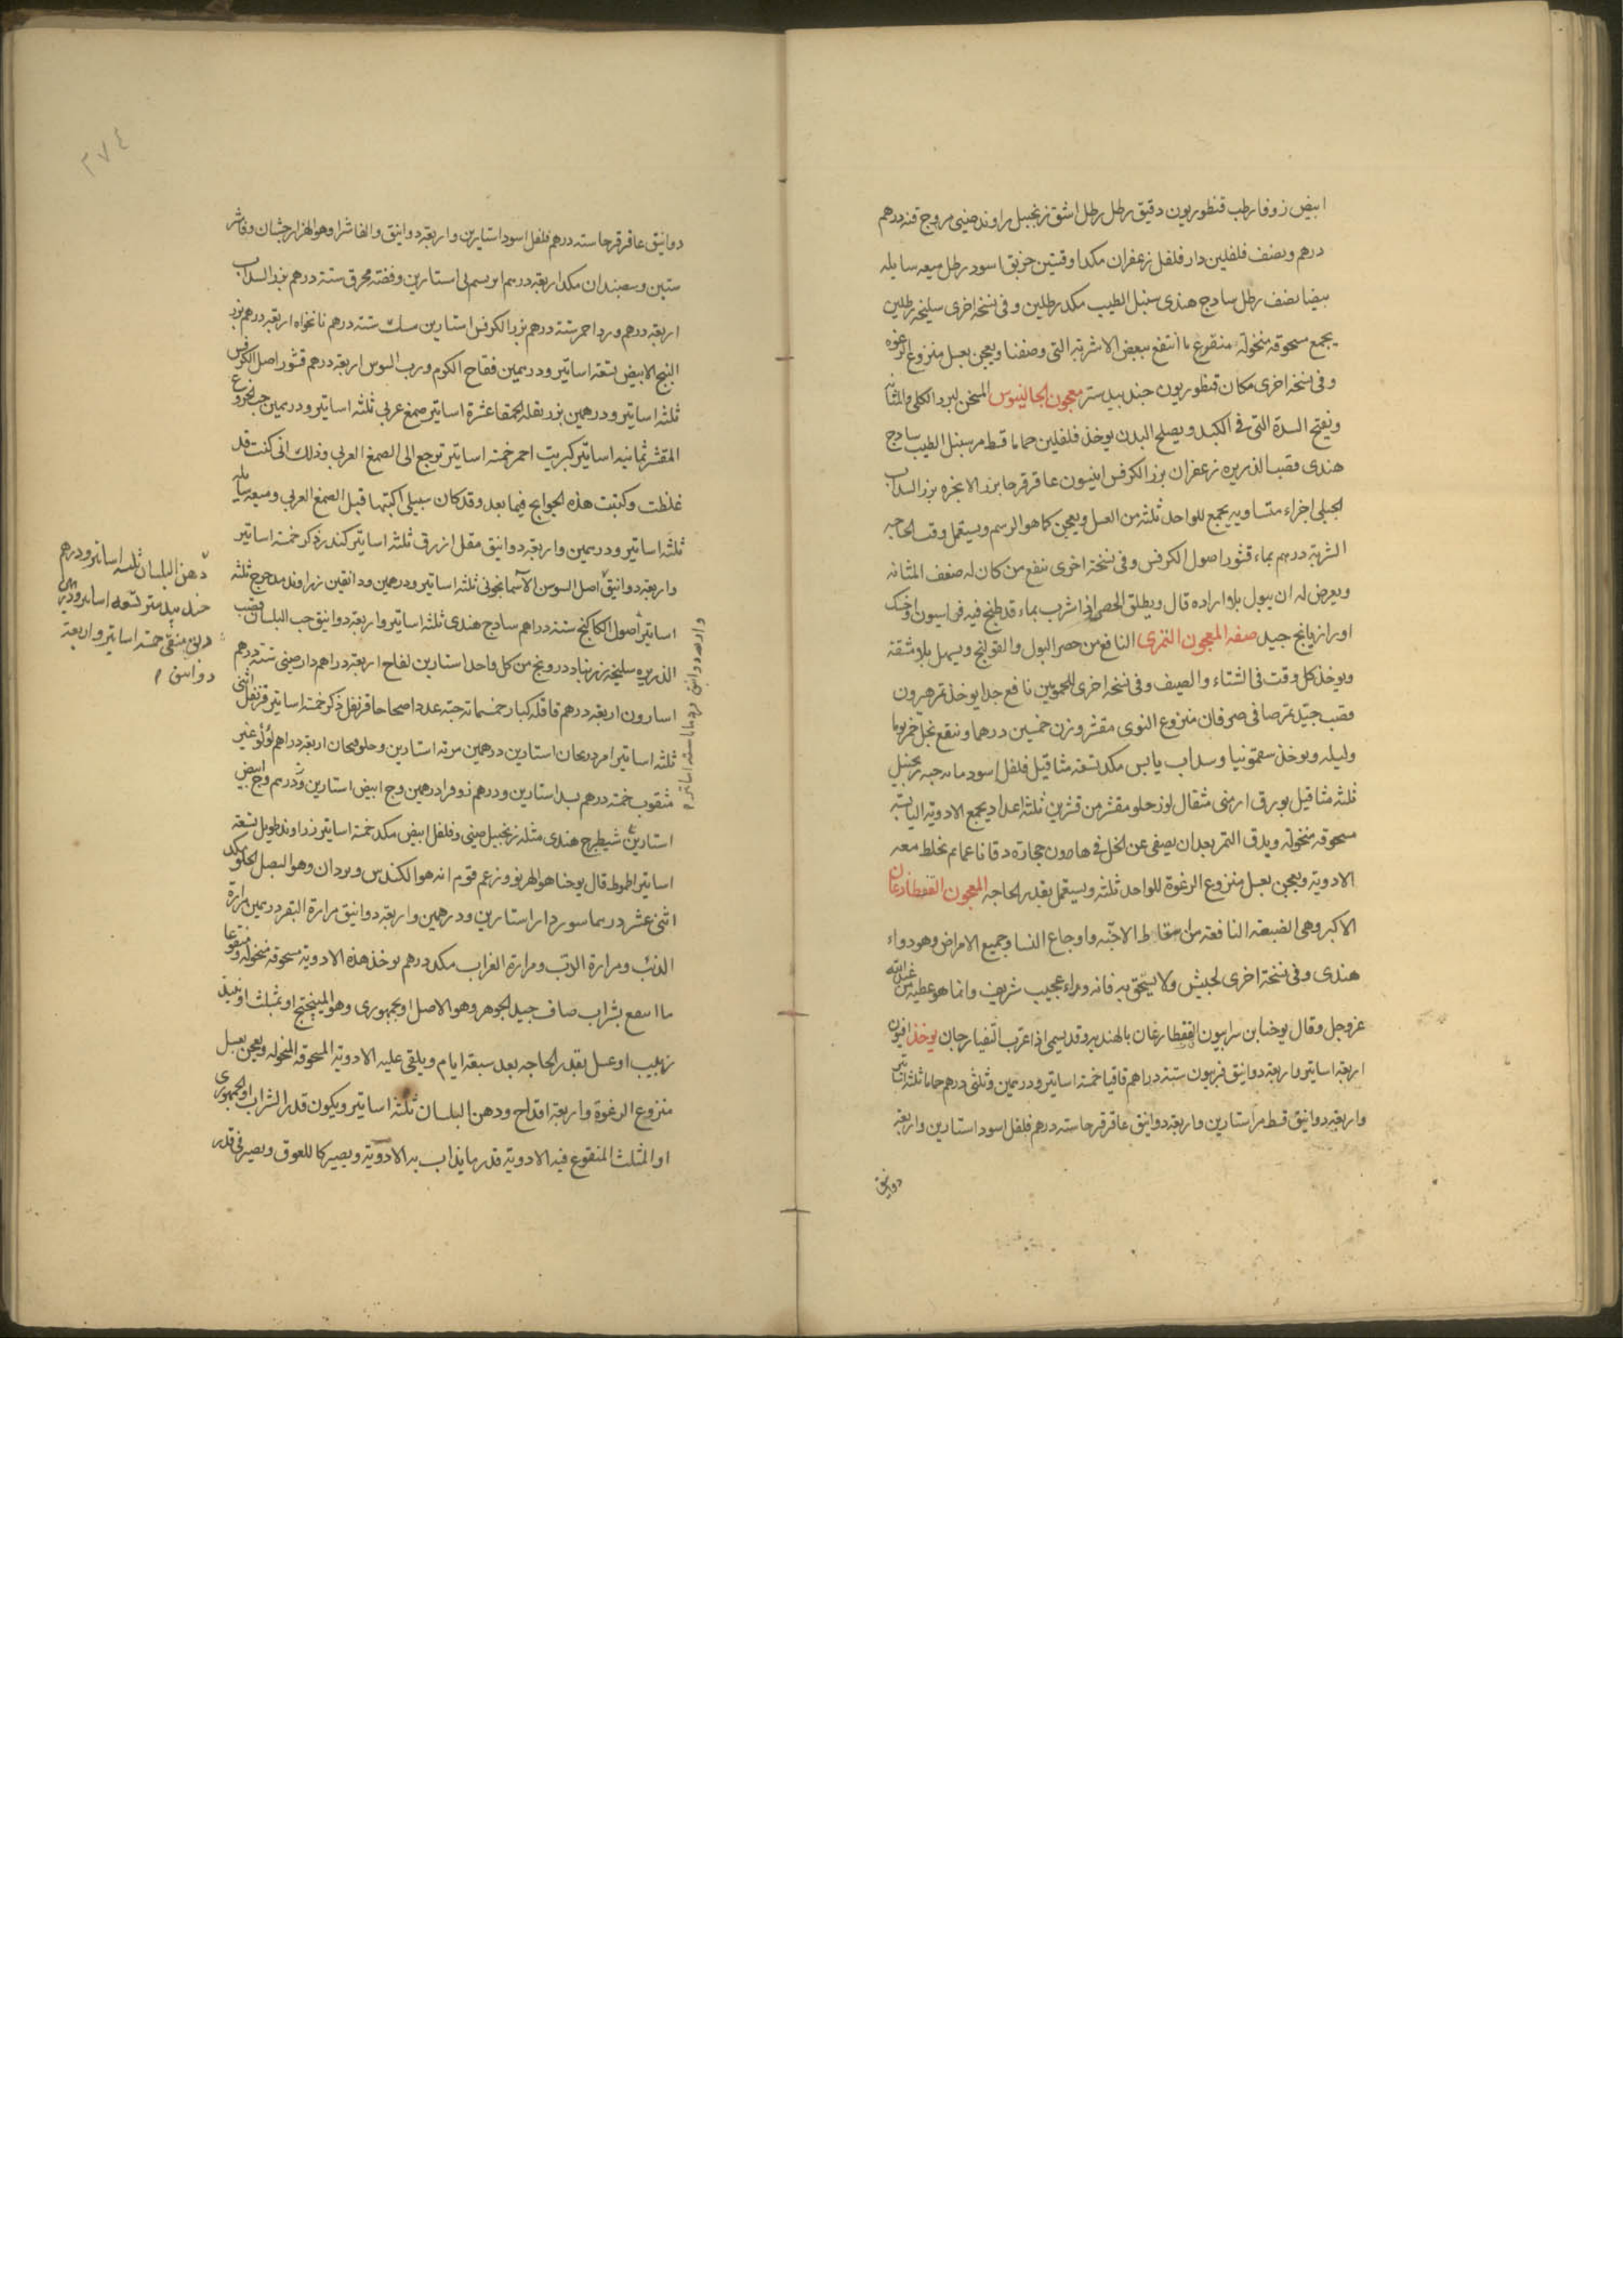 ابيض زوفا رطب قنطوريون دقيق رطل رطل اشق زنجبيل راوند صينى مر وج قنه درهم
درهم ونصف فلفلين دار فلفل زعفران مكد اوقتين خربق اسود رطل ميعه سايله
بيضا نصف رطل سادج هندى سنبل الطيب مكد رطلين وفى نسخه اخرى سليخه رطلين
يجمع مسحوقه منخوله منقوع ما انتفع ببعض الاشربه التى وصفنا ويعجن بعسل منزوع الرغوه
وفى نسخه اخرى مكان قنطوريون جندبيدستر معجون الجالينوس المسخن لبرد الكلى والمثانه
ويفتح السدة التى فى الكبد ويصلح البدن يوخذ فلفلين حماما قسط مر سنبل الطيب سادج
هندى قصب الذريره زعفران بزر الكرفس انيسون عاقرقرحا بزر الانجره بزر السداب
الجبلى اجزاء متساويه يجمع للواحد ثلثه من العسل ويعجن كما هو الرسم ويستعمل وقت الحاجه
الشربة درهم بماء قشور اصول الكرفس وفى نسخة اخرى ينفع من كان له ضعف المثانه
ويعرض له ان يبول بلا اراده قال ويطلق الحصر اذا شرب بماء قد طبخ فيه فراسيون او خسك
او رازيانج جيد صفه المعجون التمرى النافع من حصر البول والقولنج ويسهل بلا مشقه
ويوخذ كل وقت فى الشتاء والصيف وفى نسخه اخرى للمحمومين نافع جدا يوخذ تمر هيرون
قصب جيد تمر صافى صرفان منزوع النوى مقشر وزن خمسين درهما وينقع بخل خمر يوما
وليله ويوخذ سقمونيا وسداب يابس مكد تسعه مثاقيل فلفل اسود مايه حبه زنجبيل
ثلثه مثاقيل بورق ارمنى مثقال لوز حلو مقشر من قشرين ثلثة اعداد يجمع الادويه اليابسه
مسحوقه منخوله ويدق التمر بعد ان يصفى عن الخل فى هاون حجارة دقا ناعما ثم تخلط معه
الادويه ويعجن بعسل منزوع الرغوة للواحد ثلثه ويستعمل بقدر الحاجه المعجون القفطارغان
الاكبر وهى الضبعه النافعة من اسقاط الاجنه واوجاع النسا وجميع الامراض وهو دواء
هندى وفى نسخة اخرى لحبيش ولا يستحق به فانه دواء عجيب شريف وانما هو عطيه من عند الله
عز وجل وقال يوحنا بن سرابيون القفطارغان بالهنديه وقد يسمى اذا عرب القفيارجان يوخذ افيون
اربعة اساتير واربعة دوانيق فربيون ستة دراهم قاقيا خمسه اساتير ودرهمين وثلثى درهم حماما ثلثه اساتير
واربعة دوانيق قسط مر استارين واربعة دوانيق عاقرقرحا سته درهم فلفل اسود استارين واربعة
دوانيق
٣٧٤
دوانيق عاقرقرحا سته درهم فلفل اسود استارين واربعة دوانيق والفاشرا وهو الهزارجشان وفاشر
ستين وسعبندان مكد اربعة درهم ابريسم نى استارين وفضه محرق ستة درهم بزر السداب
اربعة درهم ورد احمر ستة درهم بزر الكرفس استارين سك ستة درهم نانخواه اربعة درهم بزر
البنج الابيض تسعة اساتير ودرهمين فقاح الكرم ورب السوس اربعة درهم قشور اصل الكرفس
ثلثه اساتير ودرهمين بزر بقلة الحمقا عشرة اساتير صمغ عربى ثلثه اساتير ودرهمين حب الخروع
المقشر ثمانيه اساتير كبريت احمر خمسه اساتير ترجع الى الصمغ العربى وذلك انى كنت قد
غلطت وكتبت هذه الحوايج فيما بعد وقد كان سبيلى اكتبها قبل الصمغ العربى وميعه سايله
ثلثه اساتير ودرهمين واربعة دوانيق مقل ازرق ثلثه اساتير كندر ذكر خمسه اساتير
واربعة دوانيق اصل السوسن الاسمانجونى ثلثه اساتير ودرهمين ودانقين زراوند مدحرج ثلثه
اساتير اصول الكاكنج ستة دراهم سادج هندى ثلثه اساتير واربعة دوانيق حب البلسان قصب
الذريره سليخه زرنباد درونج من كل واحد استارين لفاح اربعة دراهم دارصينى ستة درهم
اسارون اربعة درهم قاقله كبار خمسمايه حبه عددا صحاحا قرنفل ذكر خمسه اساتير قرنفل انثى
ثلثه اساتير امردريحان استارين درهمين مر ته استارين وحلوبحان اربعة دراهم لولو غير
مثقوب خمسه درهم بسد استارين ودرهم نوفرا درهمين وج ابيض استارين ودرهم وج ابيض
استارين شيطرج هندى مثله زنجبيل صينى وفلفل ابيض مكد خمسه اساتير زراوند طويل تسعة
اساتير اطموط قال يوحنا هو الهربوو وزعم قوم انه هو الكندس وبردان وهو البصل الحلو مكد
اثنى عشر درهما سورددار استارين ودرهمين واربعة دوانيق مرارة البقر درهمين مرارة
الذئب ومرارة الدب ومرارة الغراب مكد درهم يوخذ هذه الادوية مسحوقه منخوله منقوعا
ما انتفع بشراب صاف جيد الجوهر وهو الاصل او بجمهورى وهو الميبختج او بمثلث او نبيذ
زبيب او عسل بقدر الحاجه بعد سبعة ايام ويلقى عليه الادوية المسحوقه المنخوله ويعجن بعسل
منزوع الرغوة واربعة اقداح ودهن البلسان ثلثه اساتير ويكون قدر الشراب او الجمهورى
او المثلث المنقوع فيه الادوية قدر ما يذاب به الادوية ويصير كاللعوق ويصير فى قدر
دهن البلسان ثلثه اساتير ودرهم
جندبيدستر تسعه اساتير ودرهمين
دبق منقى خمسه اساتير واربعة
دوانيق
واربعة دوانيق